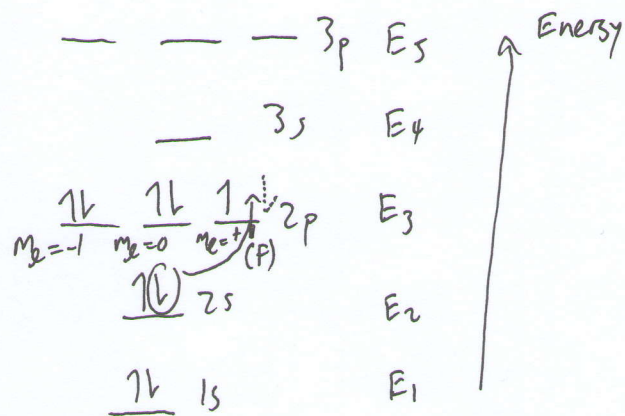 3p E5 Energy
3s E4
1⇂ 1⇂ 1 ↑ 2p E3
mℓ=-1 mℓ=0 mℓ=+1
(F)
1⇂ 2s E2
1⇂ 1s E1